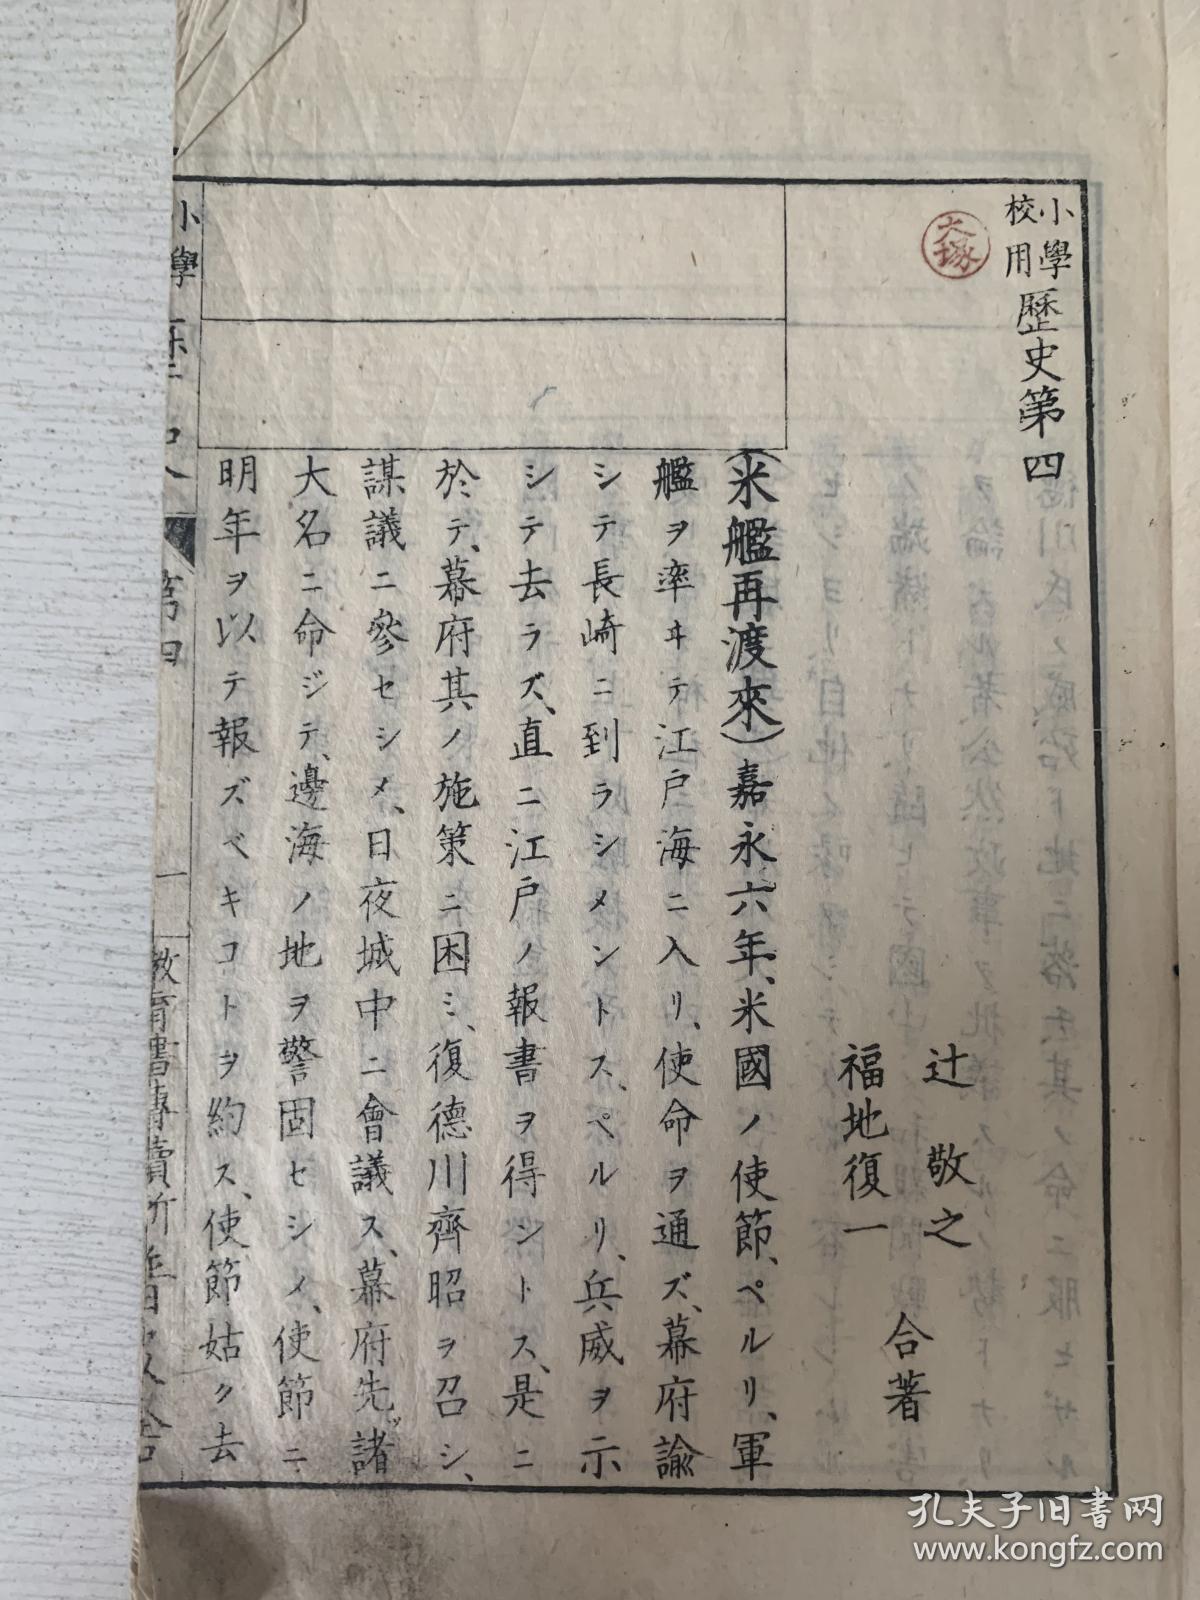 小學校用歷史第四
大塚
辻敬之
福地復一
合著
(米艦再渡來)嘉永六年、米國ノ使節、ペルリ、軍
艦ヲ率ヰテ江戸海ニ入リ、使命ヲ通ズ、幕府諭
シテ長崎ニ到ラシメントス、ペルリ、兵威ヲ示
シテ去ラズ、直ニ江戸ノ報書ヲ得ントス、是ニ
於テ、幕府其ノ施策ニ困ミ、復德川齊昭ヲ召シ、
謀議ニ參セシメ、日夜城中ニ會議ス、幕府先ヅ諸
大名ニ命ジテ、邊海ノ地ヲ警固セシメ、使節ニ
明年ヲ以テ報ズベキコトヲ約ス、使節姑ク去
小學歷史 第四 一 教育書專賣所普及舍
孔夫子旧书网
www.kongfz.com